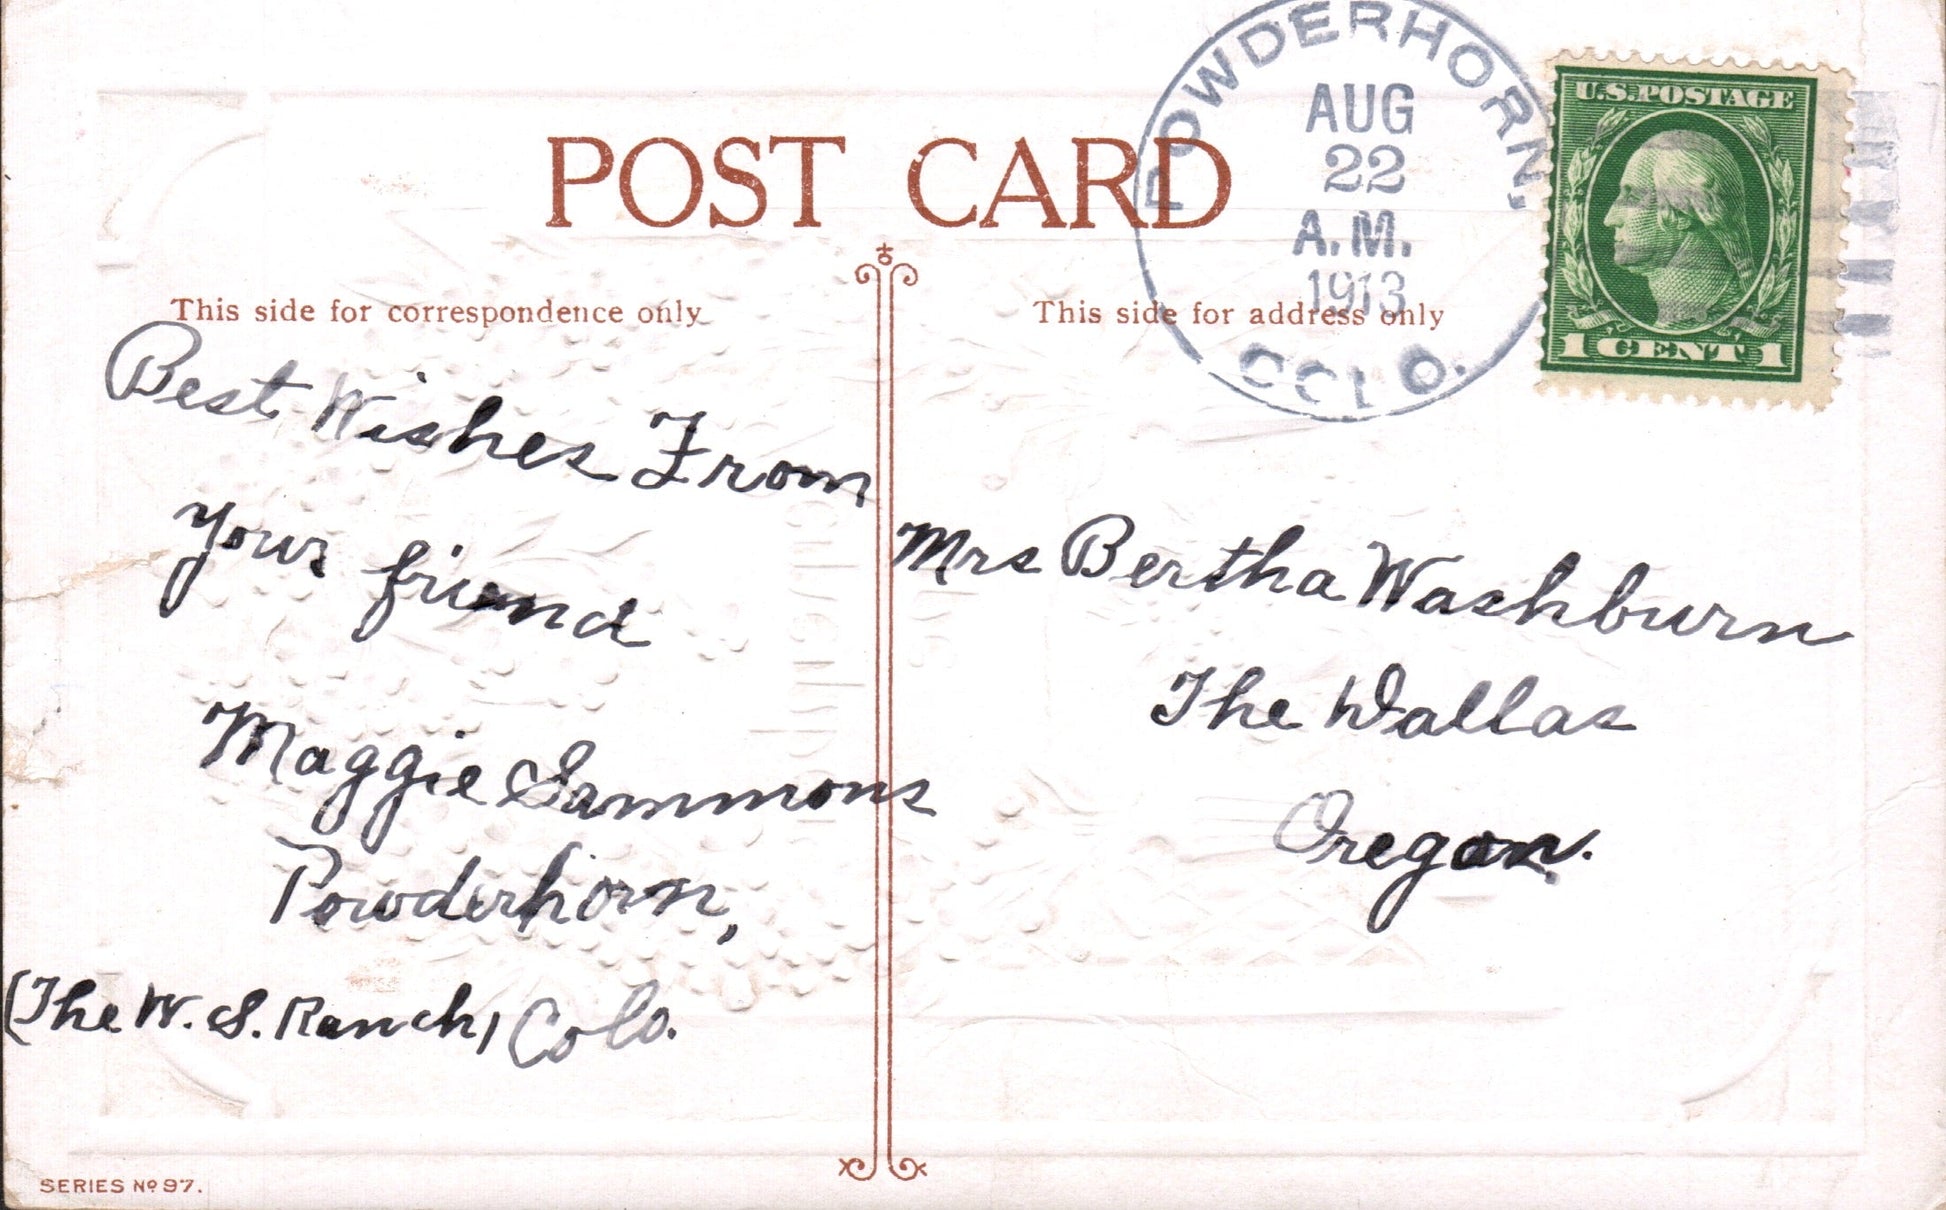 POST CARD
POWDERHORN,
AUG
22
A.M.
1913
COLO.
U.S.POSTAGE
1 CENT 1
This side for correspondence only
Best Wishes From
your friend
Maggie Sammons
Powderhorn,
(The W. S. Ranch) Colo.
This side for address only
Mrs Bertha Washburn
The Dallas
Oregon.
SERIES No 97.